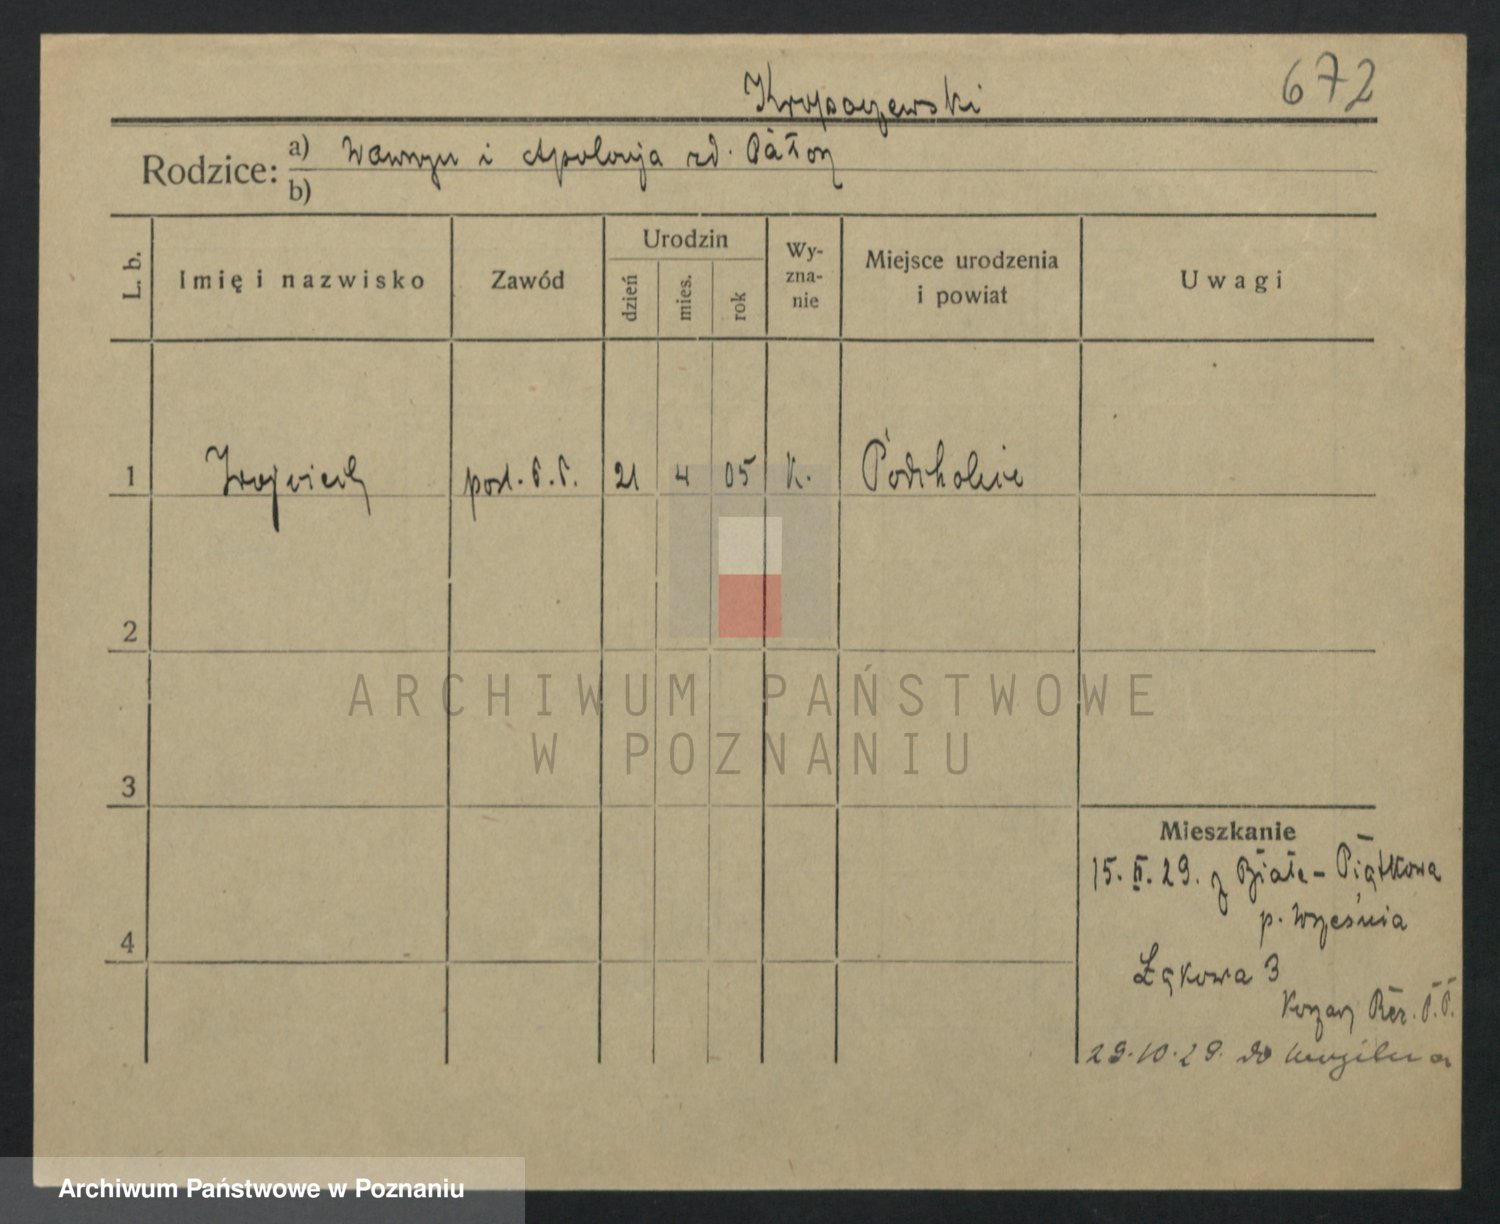 672
Kropaczewski
Rodzice: a) Wawrzyn i Apolonja zd.
b)
L. b.
Imię i nazwisko
Zawód
Urodzin
dzień
mies.
rok
Wy-
zna-
nie
Miejsce urodzenia
i powiat
Uwagi
1 Wojciech post. P.P. 21 4 05 k. Podstolice
2
3
4
Mieszkanie
15. II. 29. z Białe-Piątkowa
p. Września
Łąkowa 3
Koszary Rez. P.P.
29.10.29. do Mogilna
ARCHIWUM PAŃSTWOWE
W POZNANIU
Archiwum Państwowe w Poznaniu